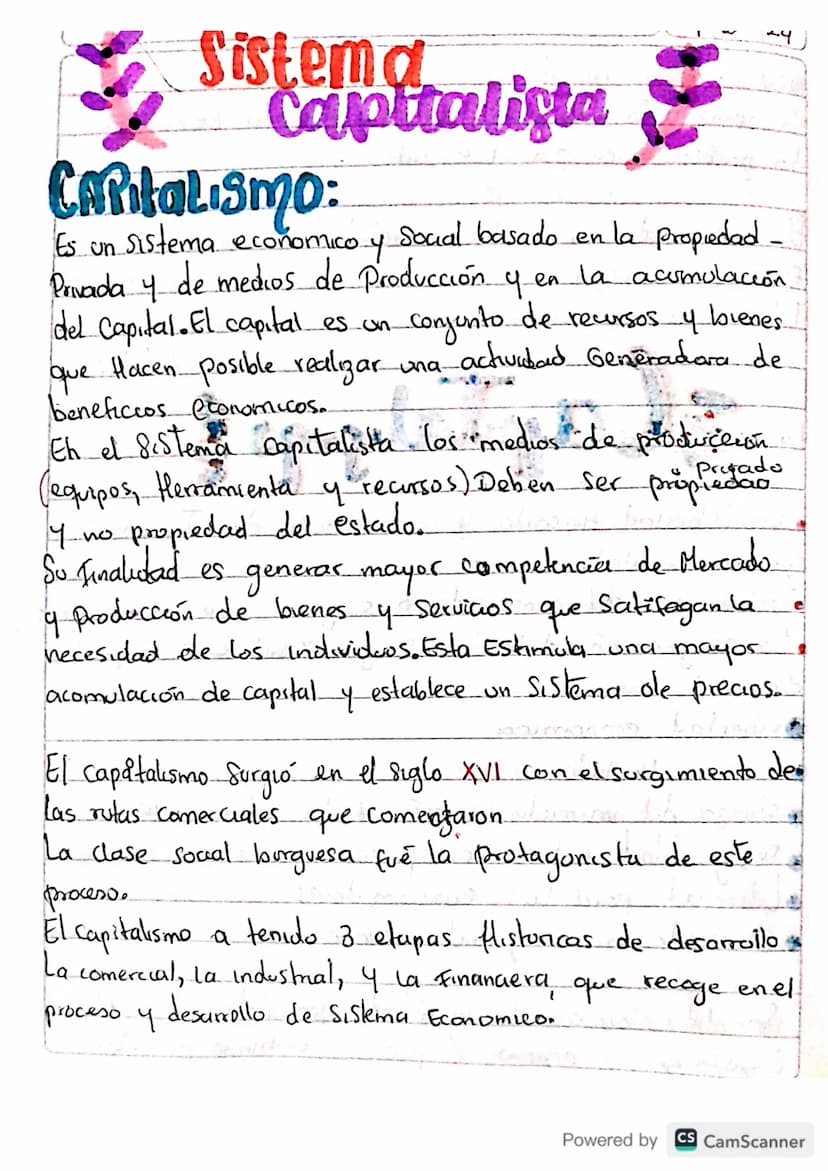 24
Sistema
Capitalista
CAPitaLismo:
Es un sistema economico y Social basado en la Propiedad -
Privada y de medios de Producción y en la acumulación
del Capital. El capital es un conjunto de recursos y bienes
que Hacen posible realizar una actividad Generadora de
beneficios economicos.
En el Sistema capitalista los medios de producción
(equipos, Herramienta y recursos) Deben ser propiedad Privado
y no propiedad del estado.
Su Finalidad es generar mayor competencia de Mercado
y Producción de bienes y Servicios que Satifagan la
necesidad de los individuos. Esta Estimula una mayor
acomulación de capital y establece un Sistema de precios.
El capitalismo Surgió en el Siglo XVI con el surgimiento de
las rutas comerciales que comenzaron
La clase social burguesa fué la protagonista de este
proceso.
El capitalismo a tenido 3 etapas Historicas de desarrollo
La comercial, La industrial, y La Financiera, que recoge en el
proceso y desarrollo de Sistema Economico.
Powered by CS CamScanner